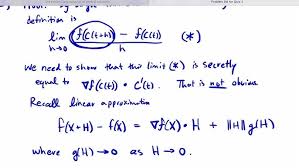 definition is
lim h→0 f(C(t+h)) - f(C(t)) / h (*)
We need to show that this limit (*) is secretly
equal to ∇f(C(t)) • C'(t). That is not obvious
Recall linear approximation
f(X+H) - f(X) = ∇f(X) • H + ‖H‖ g(H)
where g(H) → 0 as H → 0